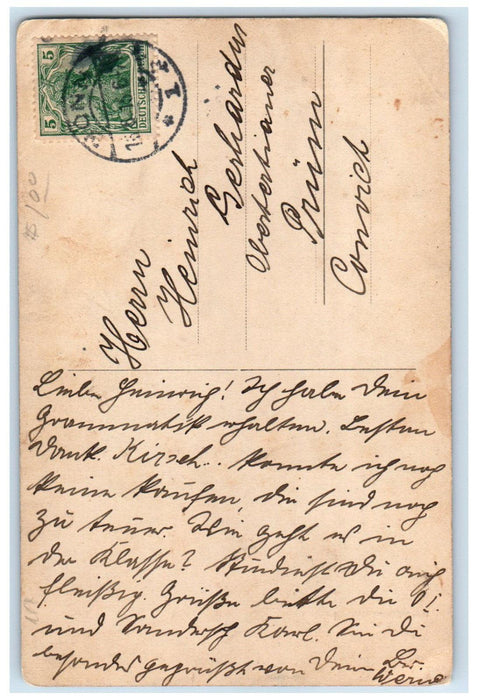 5 5
DEUTSCHES REICH
BONN
* 1 f
Herrn
Heinrich
Gerhardus
Obertertianer
Prüm
Convict
Lieber Heinrich! Ich habe Dein
Grammatik erhalten. Besten
Dank. Kirsch.. konnte ich noch
keine kaufen, die sind noch
zu teuer. Wie geht es in
der Klasse? Studierst Du auch
fleißig. Grüße bitte die
und Karl. Sei Du
besonders gegrüßt von Deinem Br.